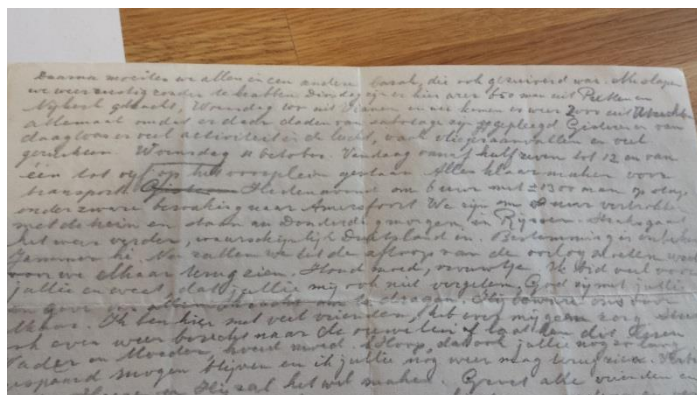 Daarna moesten we allen in een andere barak, die ook gezuiverd was. Nu slapen
we weer rustig zonder te krabben. Dinsdag zijn er hier weer 650 man uit Putten en
Nijkerk gebracht, Woensdag 100 uit en nu komen er weer 2000 uit Utrecht
allemaal omdat er daar daden van sabotage zijn gepleegd. Gisteren van
daag was er veel activiteit in de lucht, veel vliegtuigaanvallen en veel
geruchten. Woensdag 11 October. Vandaag vanaf half zeven tot 12 en van
een tot op het voorplein gestaan. Allen klaar maken voor
transport. Hedenavond om 6 uur met ± 1300 man op stap
onder zware bewaking naar Amersfoort. We zijn om uur vertrokken
met de trein en staan nu Donderdagmorgen, in Rijssen. Straks gaat
het weer verder, waarschijnlijk Duitschland in. Bestemming is onbekend
Jammer hè. Nu zullen we tot de afloop van de oorlog moeten wachten
voor we elkaar terug zien. Houd moed, vrouwtje. Ik bid veel voor
jullie en weet, dat jullie mij ook niet vergeten. God zij met jullie
en geve ons allen kracht om te dragen. Hij beware ons voor
elkaar. Ik ben hier met veel vrienden, heb over mij geen zorg.
ook even weer bericht naar de of laat hen dit lezen
Vader en Moeder, houd moed. Hoop, dat ook jullie nog zo lang
gespaard mogen blijven en ik jullie nog weer mag terugzien.
Hij zal het wel maken. Groet alle vrienden en